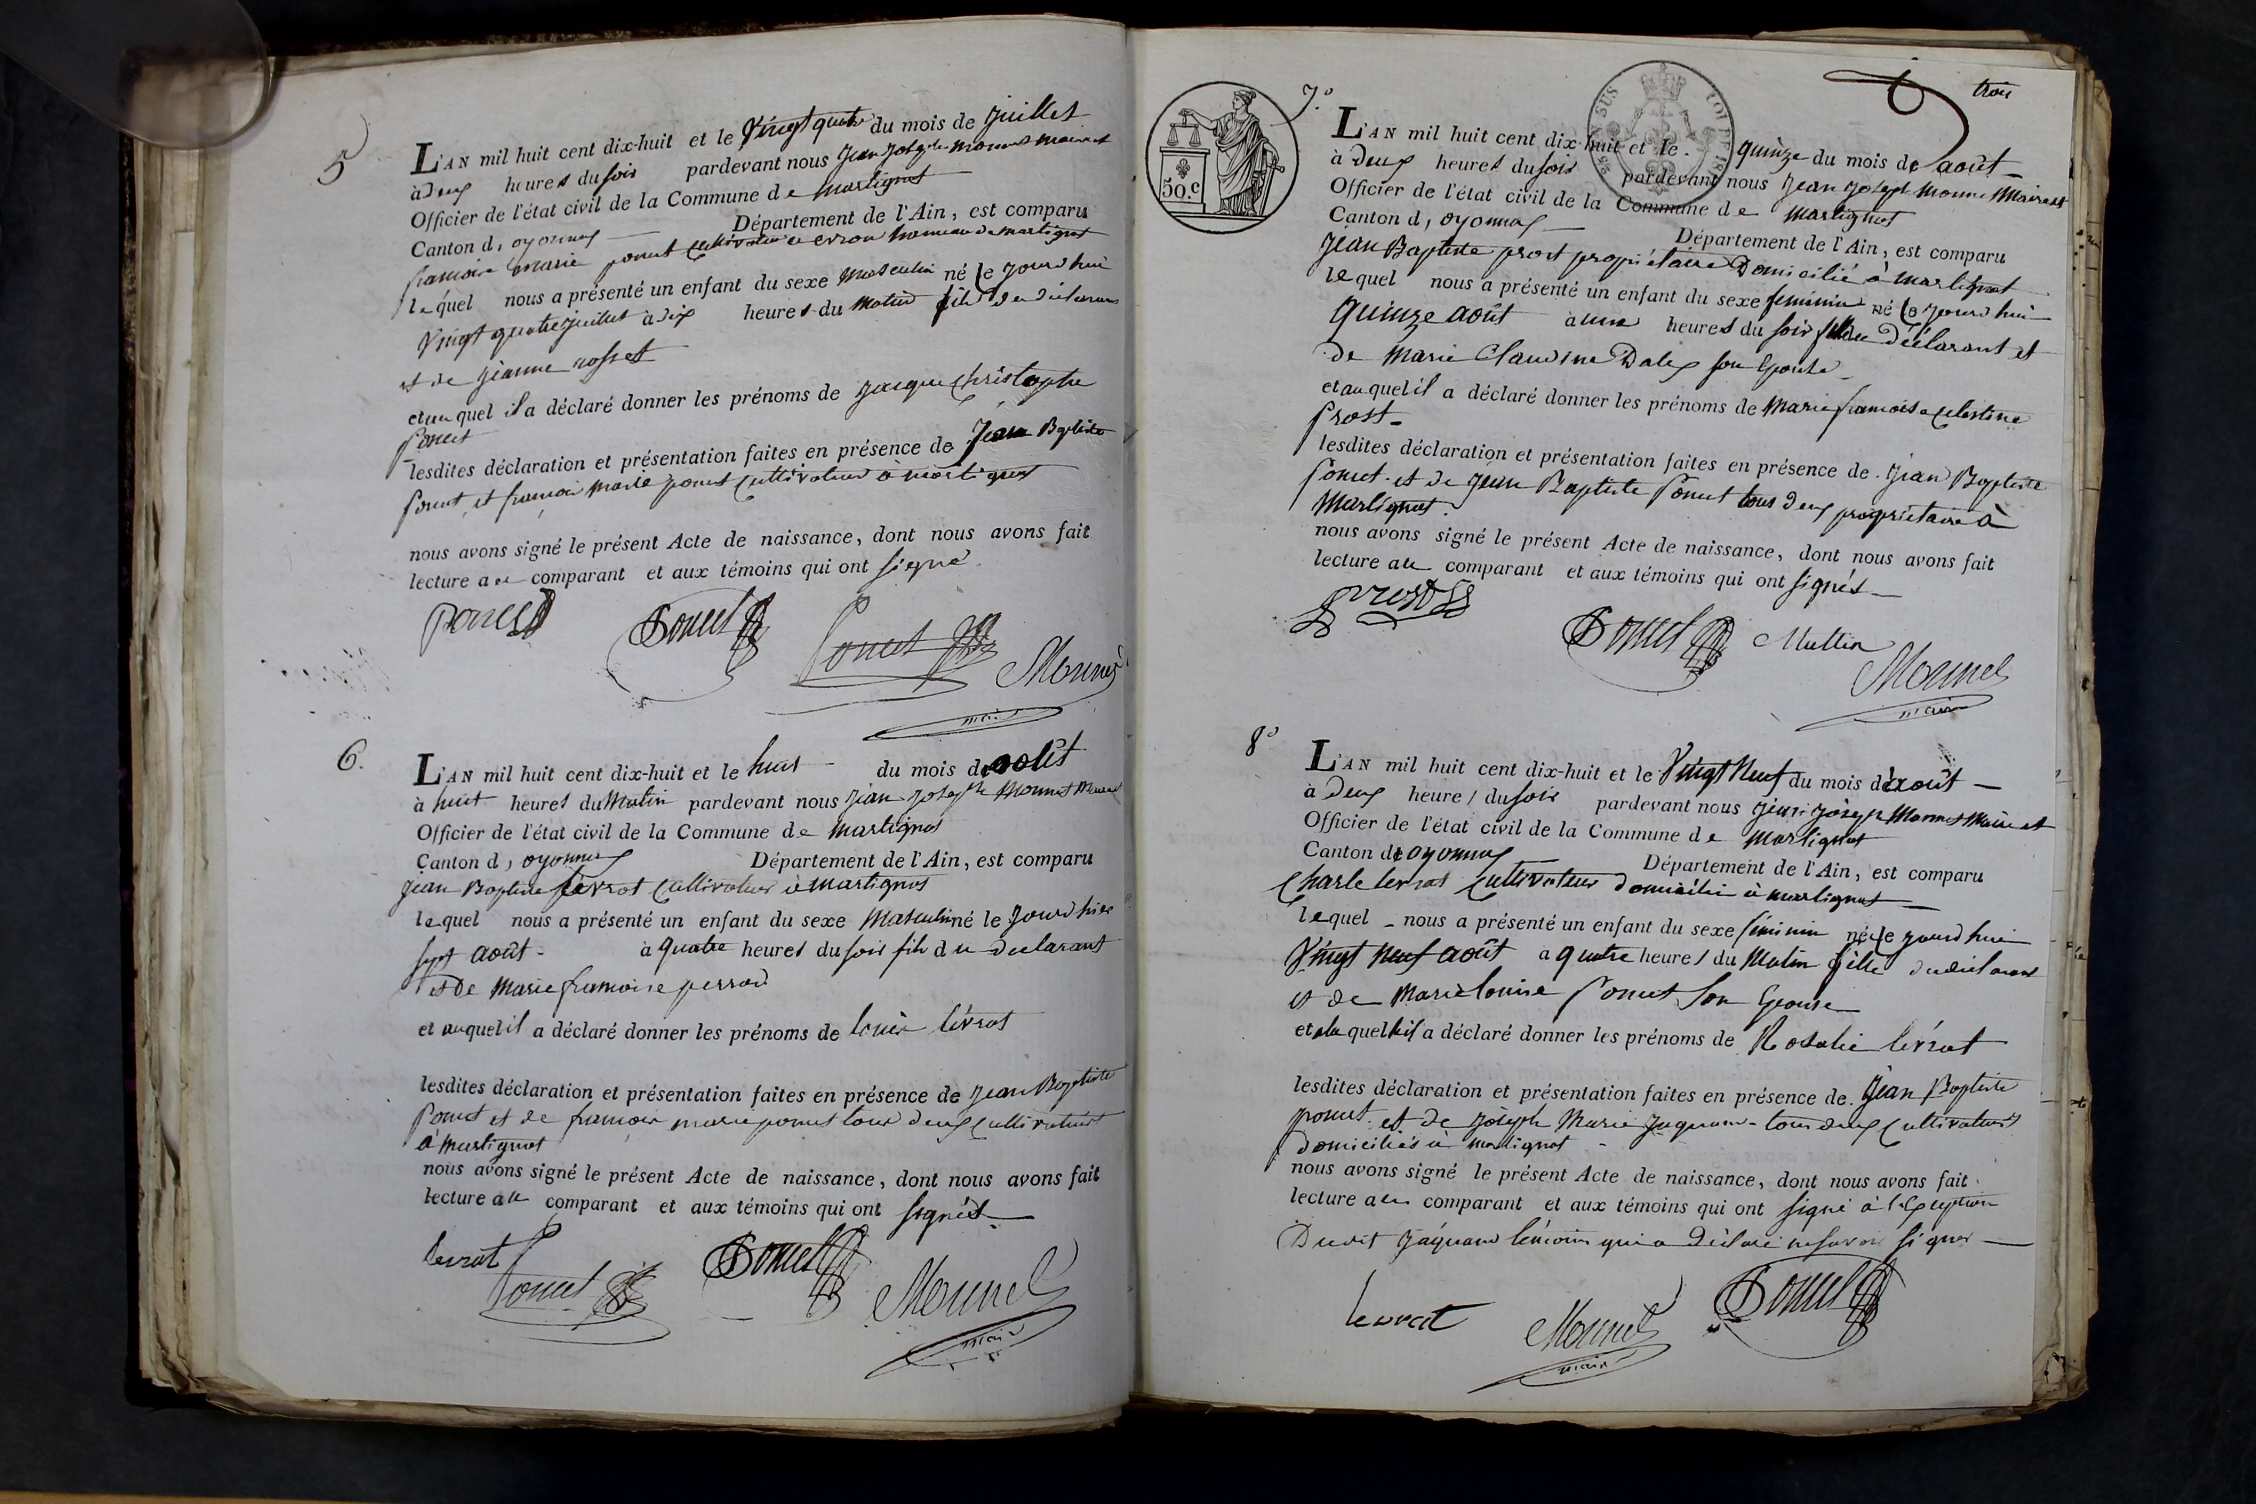 5
L'AN mil huit cent dix-huit et le Vingt quatre du mois de juillet
à Deux heures du soir pardevant nous Jean Joseph Monnet Maire et
Officier de l'état civil de la Commune de Martignat
Canton d, oyonnax Département de l'Ain, est comparu
françois Marie ponut Cultivateur hameau de Martignat
lequel nous a présenté un enfant du sexe Masculin né le jourd'hui
Vingt quatre juillet à dix heures du Matin fils du déclarant
et de jeanne
et au quel il a déclaré donner les prénoms de jacque Christophe
Poncet
lesdites déclaration et présentation faites en présence de Jean Baptiste
Poncet, et françois Marie poncet Cultivateur à Martignat
nous avons signé le présent Acte de naissance, dont nous avons fait
lecture au comparant et aux témoins qui ont signé
Poncet Poncet Poncet Monnet
maire
6.
L'AN mil huit cent dix-huit et le huit du mois de août
à huit heures du Matin pardevant nous jean joseph Monnet Maire et
Officier de l'état civil de la Commune de Martignat
Canton d, oyonnax Département de l'Ain, est comparu
Jean Baptiste levrat Cultivateur à Martignat
lequel nous a présenté un enfant du sexe Masculin né le jourd'hier
sept août - à quatre heures du soir fils du déclarant
et De Marie françoise perrod
et auquel il a déclaré donner les prénoms de louis lévrat
lesdites déclaration et présentation faites en présence de jean Baptiste
Poncet et de françois marie poncet tous deux Cultivateurs
à Martignat
nous avons signé le présent Acte de naissance, dont nous avons fait
lecture au comparant et aux témoins qui ont signés
levrat Poncet Poncet Monnet
maire
trois
50.c
7.°
L'AN mil huit cent dix-huit et le quinze du mois de août
à Deux heures du soir pardevant nous Jean Joseph Monnet Maire et
Officier de l'état civil de la Commune de Martignat
Canton d, oyonnax Département de l'Ain, est comparu
Jean Baptiste prost propriétaire Domicilié à Martignat
lequel nous a présenté un enfant du sexe feminin né le jourd'hui
Quinze août à une heures du soir fille du Déclarant et
de Marie Claudine Dalex son Epouse
et auquel il a déclaré donner les prénoms de Marie françoise Celestine
Prost
lesdites déclaration et présentation faites en présence de Jean Baptiste
Poncet et de Jean Baptiste Poncet tous deux propriétaire à
Martignat.
nous avons signé le présent Acte de naissance, dont nous avons fait
lecture au comparant et aux témoins qui ont signés
prost Poncet Mettin Monnet
maire
8°
L'AN mil huit cent dix-huit et le Vingt Neuf du mois d'août
à Deux heures du soir pardevant nous jean joseph Monnet Maire et
Officier de l'état civil de la Commune de Martignat
Canton de oyonnax Département de l'Ain, est comparu
Charle levrat Cultivateur domicilié à Martignat
lequel nous a présenté un enfant du sexe féminin née le jourd'hui
Vingt Neuf août a quatre heures du Matin fille du déclarant
et de Marie louise Poncet Son Epouse
et a laquelle il a déclaré donner les prénoms de Rosalie lévrat
lesdites déclaration et présentation faites en présence de Jean Baptiste
poncet et de joseph Marie Jaquand tous deux Cultivateurs
domiciliés à Martignat
nous avons signé le présent Acte de naissance, dont nous avons fait
lecture au comparant et aux témoins qui ont signé à l'Exception
Dudit Jaquand témoin qui a Déclaré ne savoir signer
levrat Monnet Poncet
maire